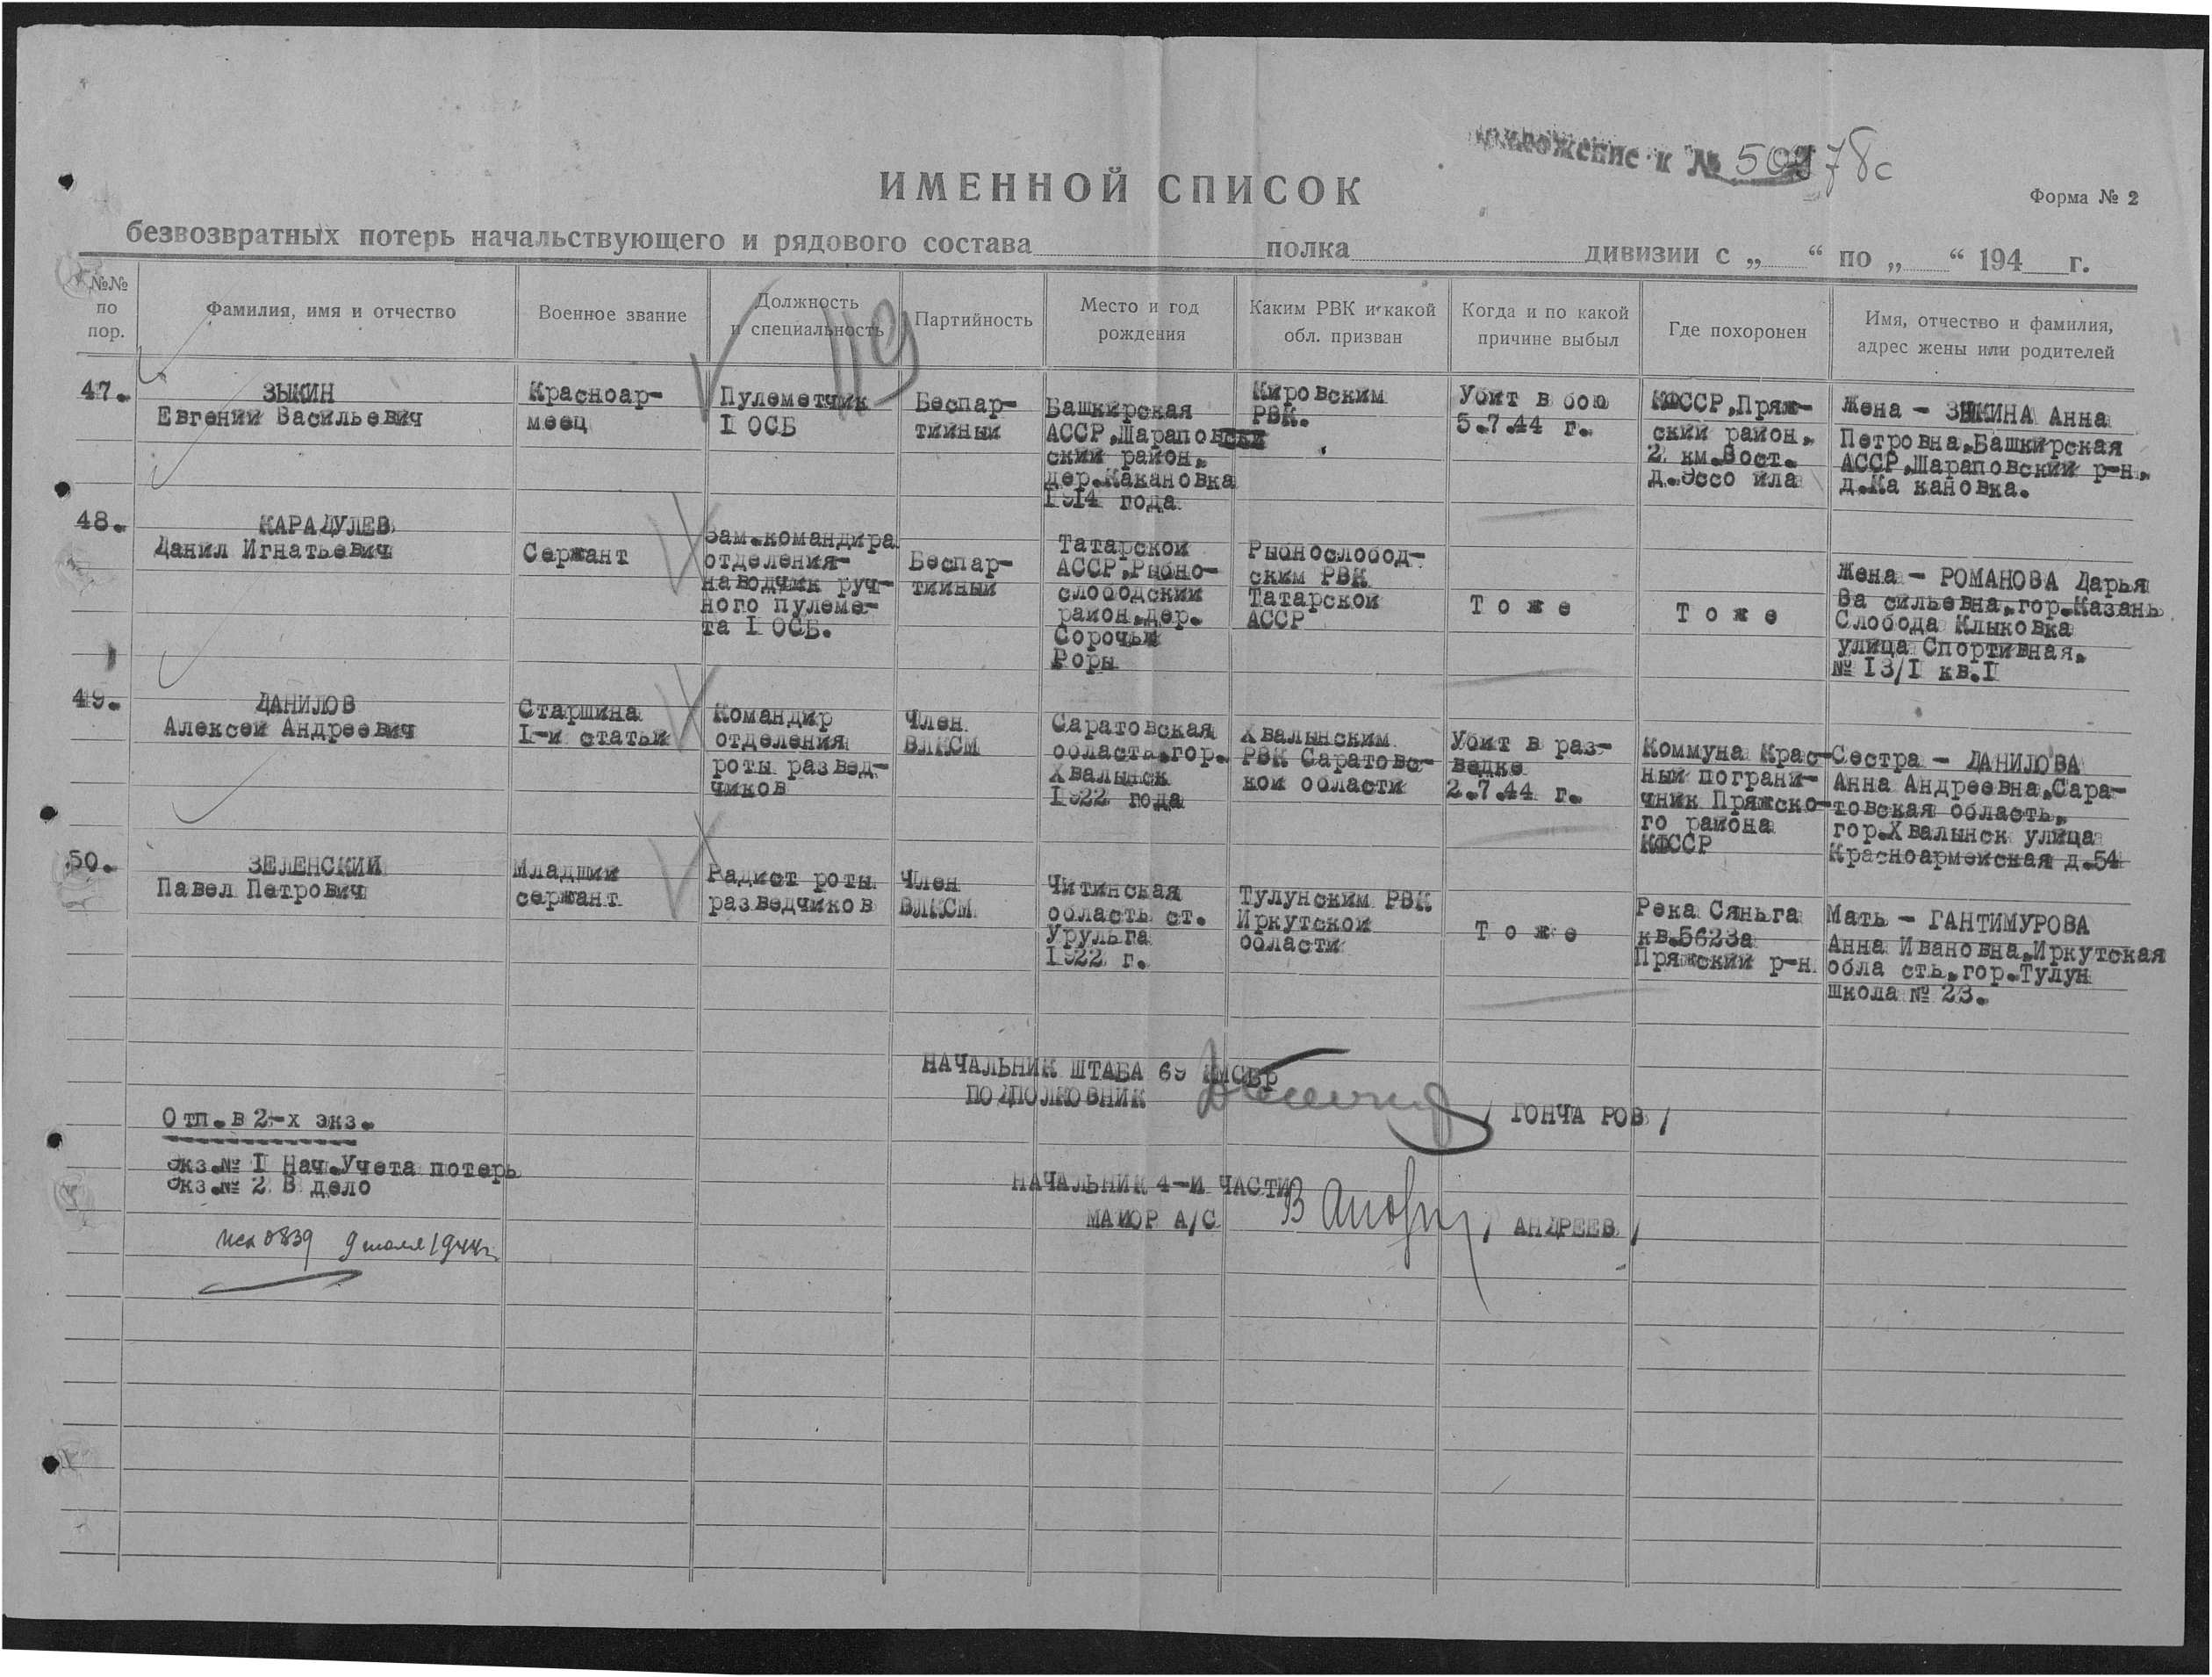 Приложение к № 50978с
ИМЕННОЙ СПИСОК
Форма № 2
безвозвратных потерь начальствующего и рядового состава полка дивизии с „ “ по „ “ 194 г.
№№ по пор.
Фамилия, имя и отчество
Военное звание
Должность и специальность
Партийность
Место и год рождения
Каким РВК и какой обл. призван
Когда и по какой причине выбыл
Где похоронен
Имя, отчество и фамилия, адрес жены или родителей
119
47.
ЗЫКИН
Евгений Васильевич
Красноар-
меец
Пулеметчик
I ОСБ
Беспар-
тийный
Башкирская
АССР,Шарапов
ский район,
дер.Какановка
1914 года
Кировским
РВК.
Убит в бою
5.7.44 г.
КФССР,Пряж-
ский район,
2 км.Вост.
д.Эссо йла
Жена - ЗЫКИНА Анна
Петровна,Башкирская
АССР,Шараповский р-н,
д.Ка кановка.
48.
КАРАДУЛЕВ
Данил Игнатьевич
Сержант
Зам.командира
отделения-
наводчик руч-
ного пулеме-
та I ОСБ.
Беспар-
тийный
Татарской
АССР,Рыбно-
слободский
район,дер.
Сорочьи
Горы
Рыбнослобод-
ским РВК
Татарской
АССР
Т о ж е
Т о ж е
Жена - РОМАНОВА Дарья
Ва сильевна,гор.Казань
Слобода Клыковка
улица Спортивная,
№ 13/I кв.I
49.
ДАНИЛОВ
Алексей Андреевич
Старшина
I-й статьи
Командир
отделения
роты развед-
чиков
Член
ВЛКСМ
Саратовская
область,гор.
Хвалынск
1922 года
Хвалынским
РВК Саратовс-
кой области
Убит в раз-
ведке
2.7.44 г.
Коммуна Крас-
ный пограни-
чник Пряжско-
го района
КФССР
Сестра - ДАНИЛОВА
Анна Андреевна,Сара-
товская область,
гор.Хвалынск улица
Красноармейская д.54
50.
ЗЕЛЕНСКИЙ
Павел Петрович
Младший
сержант
Радист роты
разведчиков
Член
ВЛКСМ
Читинская
область ст.
Урульга
1922 г.
Тулунским РВК
Иркутской
области
Т о ж е
Река Сяньга
кв.5623а
Пряжский р-н
Мать - ГАНТИМУРОВА
Анна Ивановна,Иркутская
обла сть,гор.Тулун
школа № 23.
НАЧАЛЬНИК ШТАБА 69 МСБр
ПОДПОЛКОВНИК / ГОНЧА РОВ /
Отп.в 2-х экз.
Экз.№ I Нач.Учета потерь
Экз.№ 2 В дело
НАЧАЛЬНИК 4-Й ЧАСТИ
МАЙОР А/С / АНДРЕЕВ /
исх 0839 9 июля 1944г